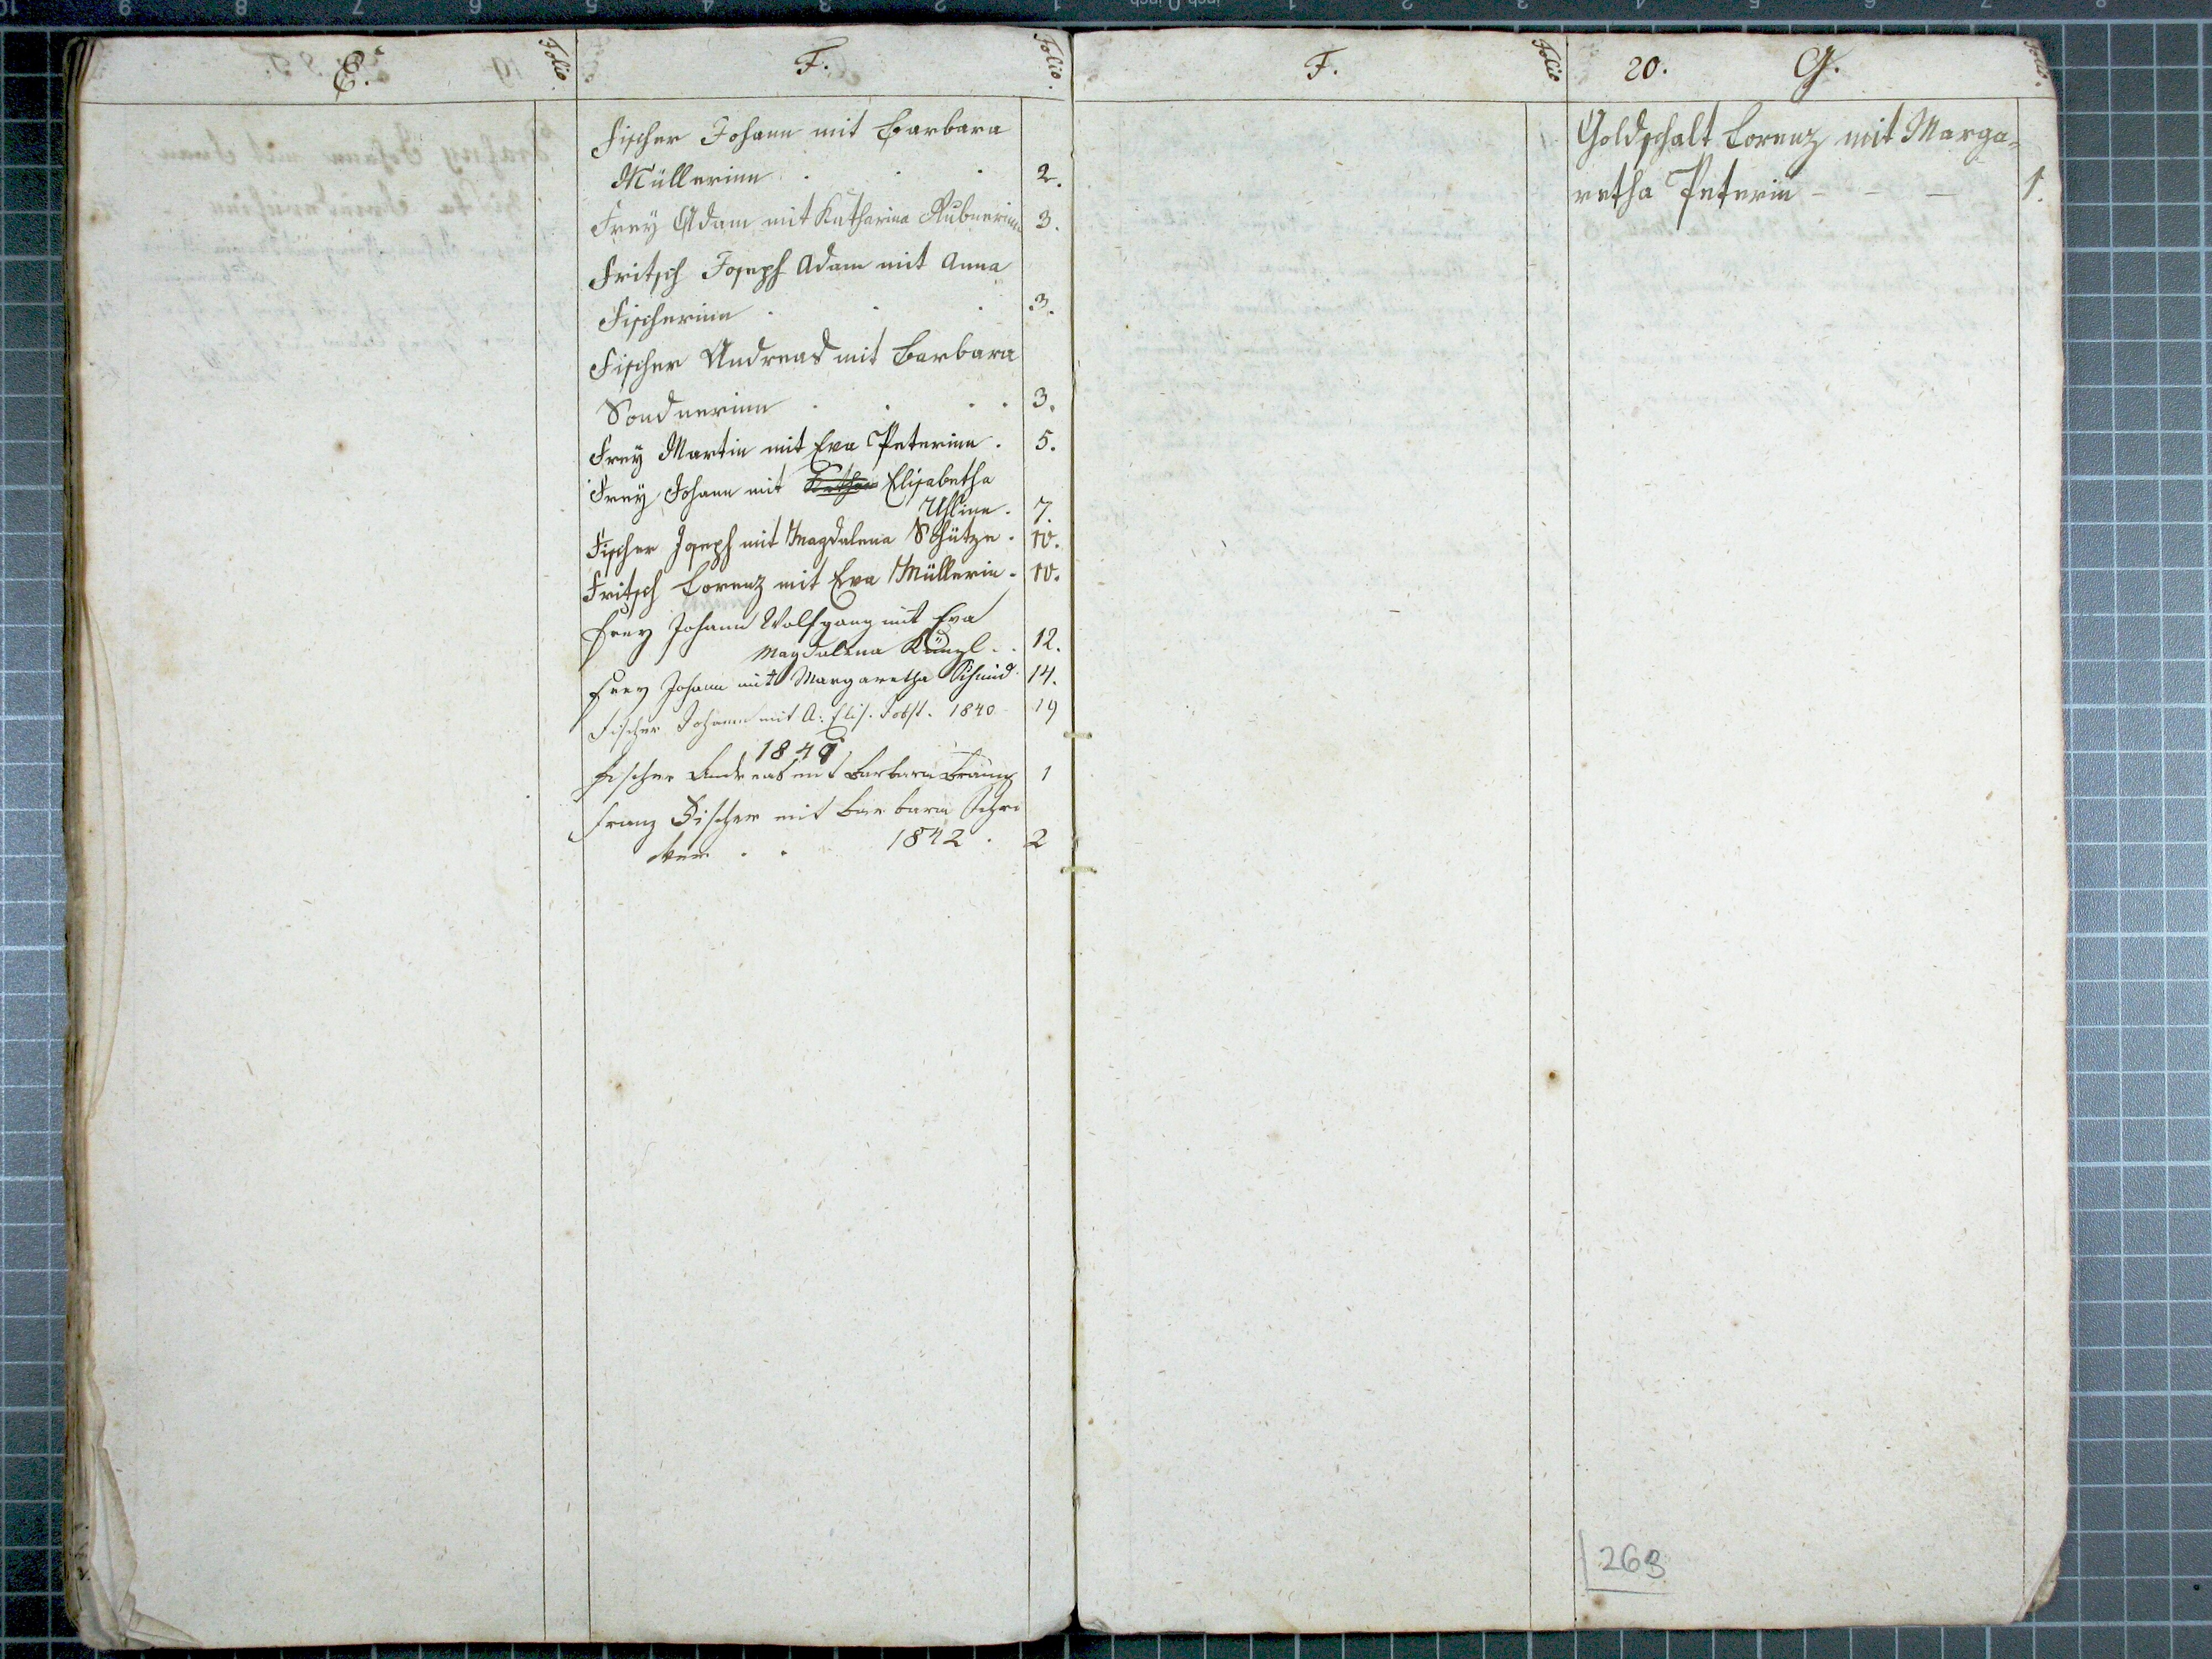 E.
Folio.
F.
Folio.
Fischer Johann mit Barbara
Müllerinn . . . 2.
Frey Adam mit Katharina Rubnerinn 3.
Fritsch Joseph Adam mit Anna
Fischerinn . . . 3.
Fischer Andreas mit Barbara
Sondnerinn . . . . 3.
Frey Martin mit Eva Peterinn . 5.
Frey Johann mit Elisabetha
Uhlinn . 7.
Fischer Joseph mit Magdalena Schütze . 10.
Fritsch Lorenz mit Eva Müllerin . 10.
Frey Johann Wolfgang mit Eva
Magdalena Künzl . . 12.
Frey Johann mit Margaretha Schmid 14.
Fischer Johann mit A. Elis. Jobst. 1840 19
184
Fischer Andreas mit Barbara 1
Franz Fischer mit Barbara
. . 1842 . 2
F.
Folio
20. G.
Folio.
Goldschalt Lorenz mit Marga-
retha Peterin - - - 1.
263